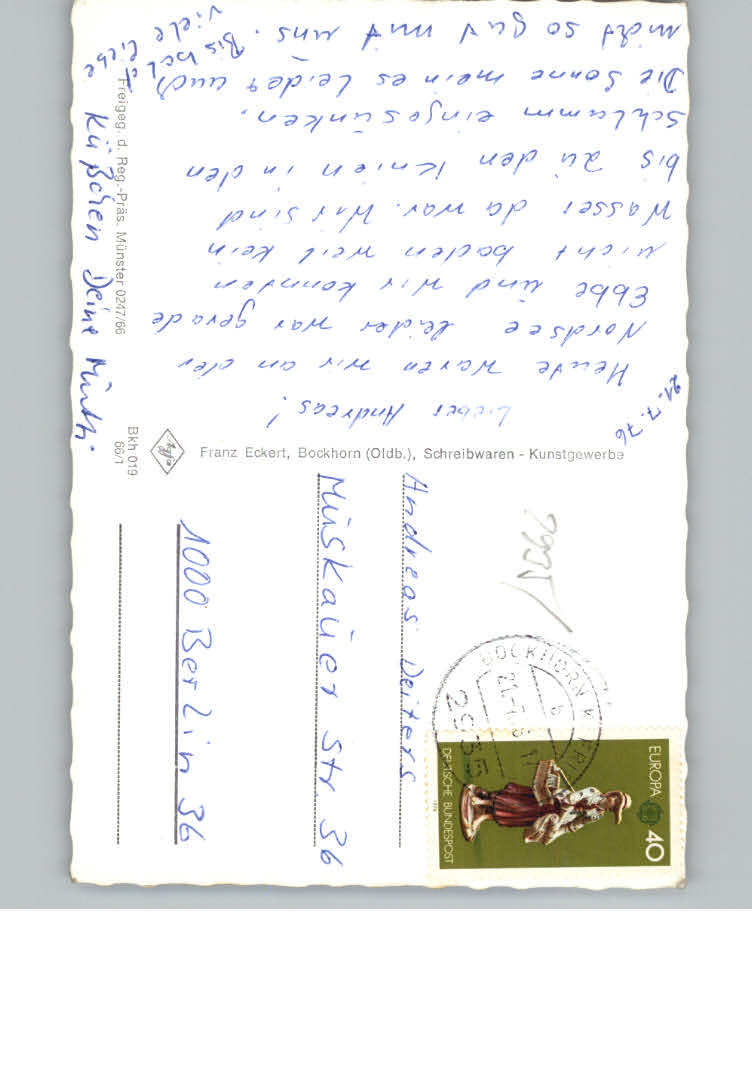 21.7.76
Lieber Andreas!
Heute waren wir an der
Nordsee leider war gerade
Ebbe und wir konnten
nicht baden weil kein
Wasser da war. Wir sind
bis zu den Knien in den
Schlamm eingesunken.
Die Sonne mein es leider auch
nicht so gut mit uns. Bis
viele liebe
Küßchen Deine Mutti.
Freigeg. d. Reg.-Präs. Münster 0247/66
Bkh 019
66/1
Agfa
Franz Eckert, Bockhorn (Oldb.), Schreibwaren - Kunstgewerbe
Andreas Deiters
Müskauer Str 36
1000 Berlin 36
BOCKHORN
21.-7.76
b
2935
EUROPA
40
DEUTSCHE BUNDESPOST